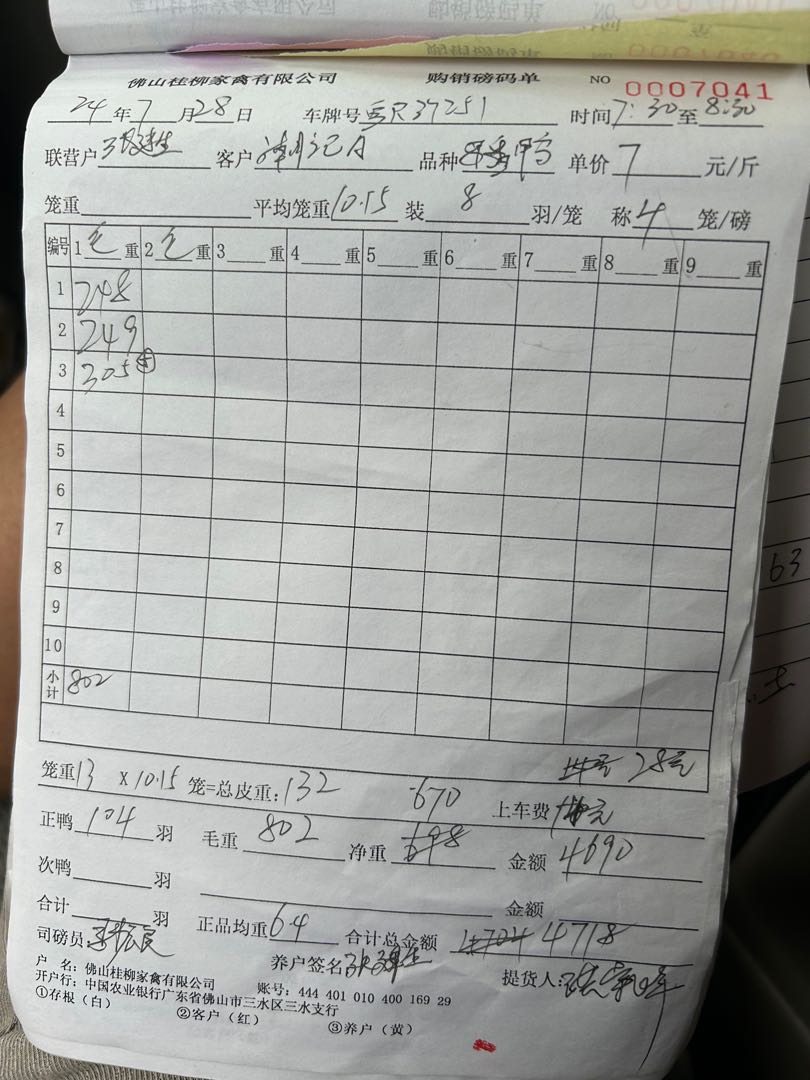 佛山桂柳家禽有限公司 购销磅码单 NO 0007041
24年7月28日 车牌号 R37251 时间7:30至8:30
联营户 客户 品种 单价7元/斤
笼重 平均笼重10.15 装8羽/笼 称4笼/磅
编号 1毛重 2毛重 3重 4重 5重 6重 7重 8重 9重
1 248
2 249
3 305 ⑤
4
5
6
7
8
9
10
小计 802
28元
笼重13 x 10.15 笼=总皮重:132 670 上车费
正鸭104羽 毛重802 净重698 金额4690
次鸭 羽 金额
合计 羽 正品均重6.4 合计总金额 4704 4718
司磅员 养户签名 提货人:
户 名:佛山桂柳家禽有限公司 账号:444 401 010 400 169 29
开户行:中国农业银行广东省佛山市三水区三水支行
①存根(白) ②客户(红) ③养户(黄)
63